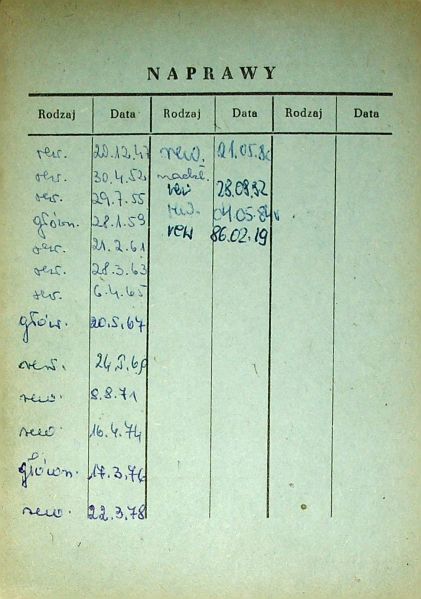 NAPRAWY
Rodzaj Data Rodzaj Data Rodzaj Data
rew. 20.12.47
rew. 30.4.52
rew. 29.7.55
główn. 28.1.59
rew. 21.2.61
rew. 28.3.63
rew. 6.4.65
głów. 20.5.67
rew. 24.5.69
rew 8.8.71
rew 16.4.74
główn. 17.3.76
rew 22.3.78
rew. 21.05.80
rew 28.0882
rew. 04.05.84
rew 86.02.19